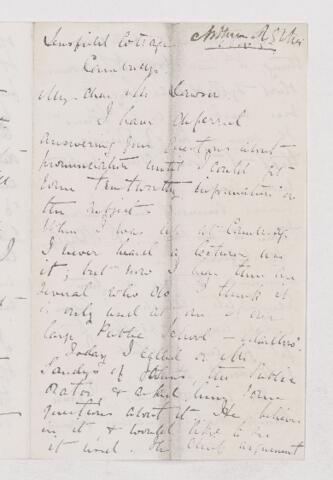 Lensfield Cottage
Cambridge.
My dear Mr Dawson
I have deferred
answering your questions about
pronunciation until I could get
some trustworthy information on
the subject.
When I was up at Cambridge
I never heard a lecturer use
it, but now I hear there are
several who do. I think it
is only used at one of our
large Public Schools
Today I called on Mr
Sandys of Johns, the Public
orator, & asked him some
questions about it. He believes
in it & would like to see
it used. The chief argument